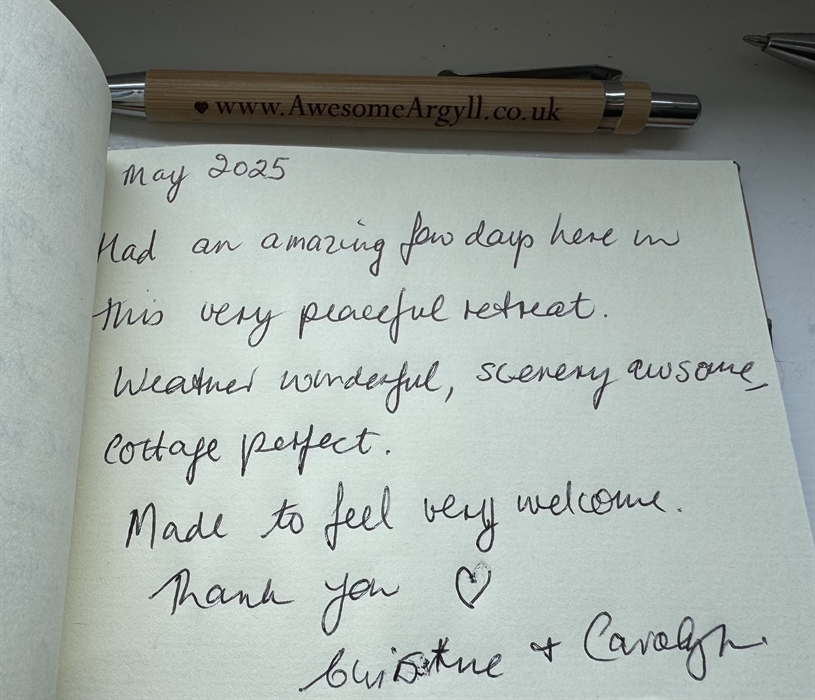 ♥ www.AwesomeArgyll.co.uk
May 2025
Had an amazing few days here in
this very peaceful retreat.
Weather wonderful, scenery awsome,
Cottage perfect.
Made to feel very welcome.
Thank you ♡
Christine + Carolyn.